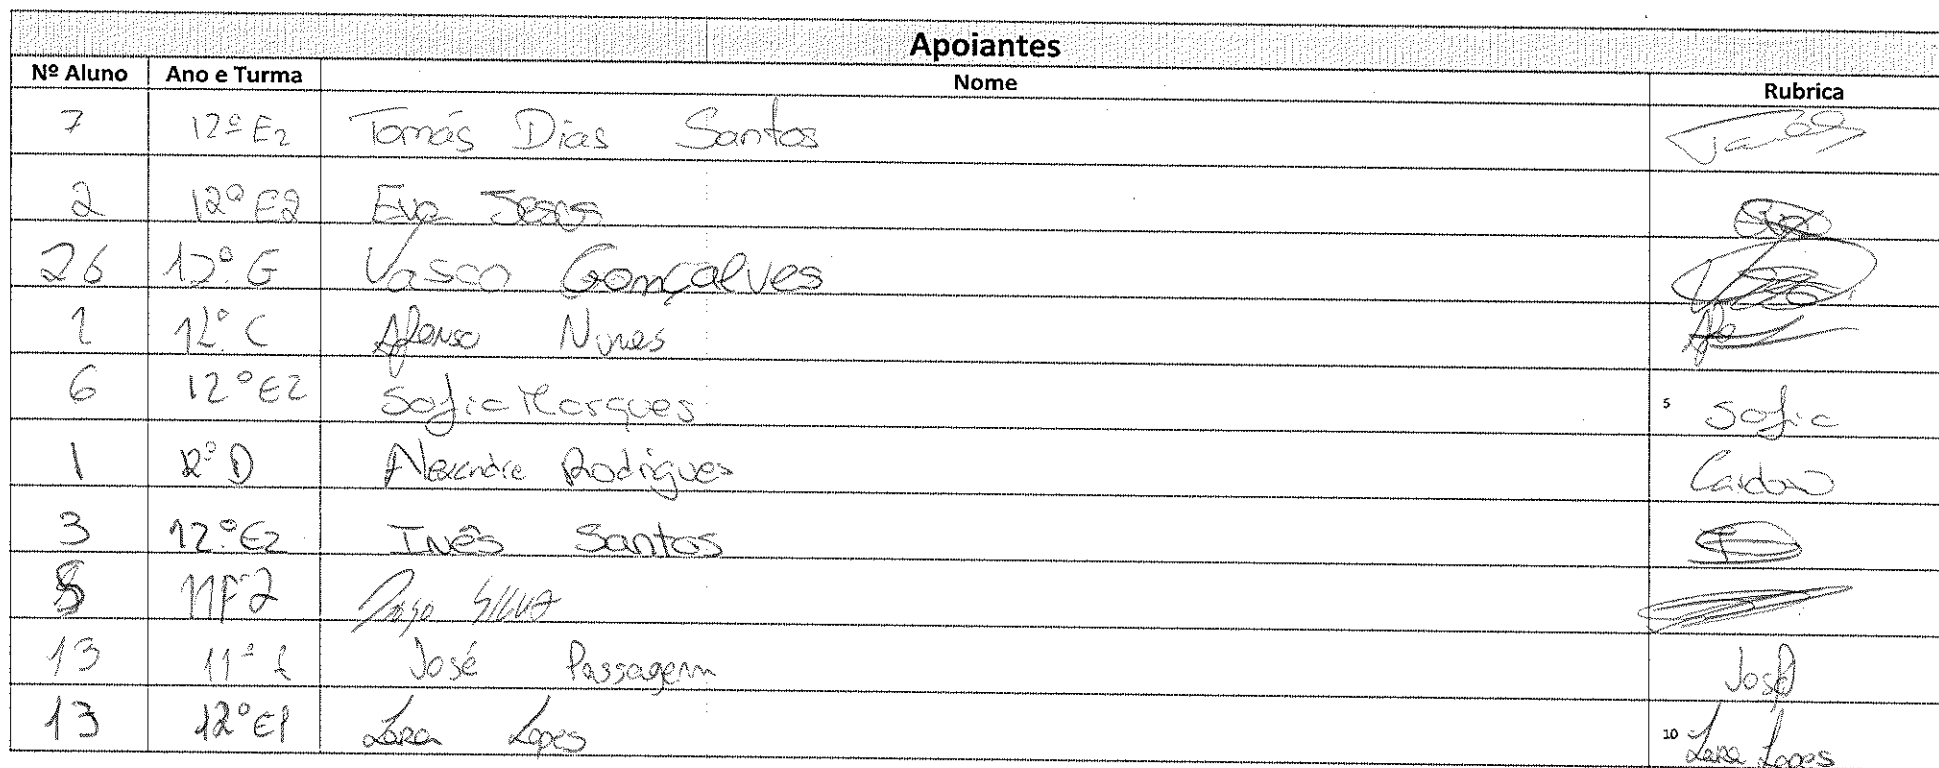 Apoiantes
Nº Aluno Ano e Turma Nome Rubrica
7 12º E2 Tomás Dias Santos
2 12º E2 Eva Jesus Eva
26 12º G Vasco Gonçalves
1 12º C Afonso Nunes
6 12º E2 Sofia Marques 5 Sofia
1 12º D Alexandre Rodrigues Cardoso
3 12.º E2 Inês Santos
8 11F2 Silva
13 11º José Passagem José
13 12º E1 Lara Lopes 10 Lara Lopes